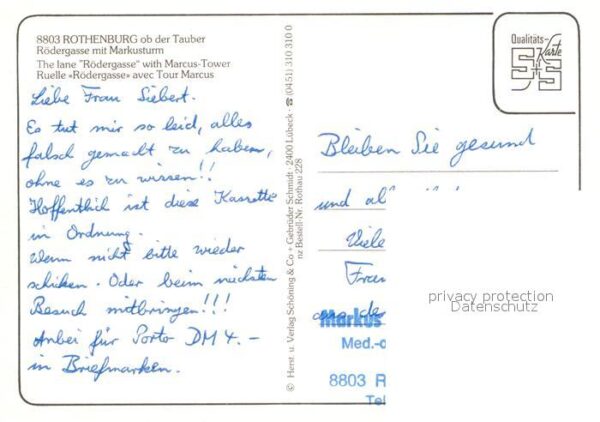 8803 ROTHENBURG ob der Tauber
Rödergasse mit Markusturm
The lane "Rödergasse" with Marcus-Tower
Ruelle «Rödergasse» avec Tour Marcus
Liebe Frau Siebert.
Es tut mir so leid, alles
falsch gemacht zu haben,
ohne es zu wissen!!
Hoffentlich ist diese Kassette
in Ordnung.
Wenn nicht bitte wieder
schicken. Oder beim nächsten
Besuch mitbringen!!!
Anbei für Porto DM 4.-
in Briefmarken.
© Herst. u. Verlag Schöning & Co + Gebrüder Schmidt · 2400 Lübeck · ☎ (0451) 310 310 0
nz Bestell-Nr. Rothau 228
Qualitäts-
Karte
S+S
Bleiben Sie gesund
und
Viele
Fran
aus de
privacy protection
Datenschutz
Markus
Med.-
8803 R
Tel